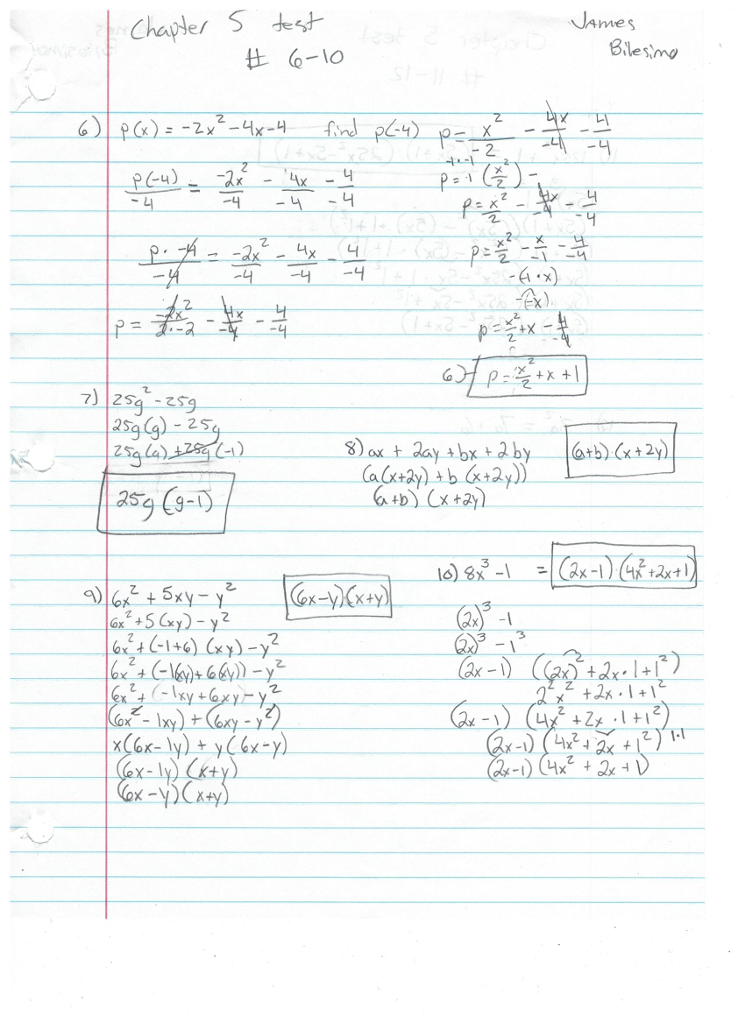 Chapter 5 test
James
# 6-10
Bilesimo
6) p(x) = -2x² - 4x - 4 find p(-4)
p(-4)/-4 = -2x²/-4 - 4x/-4 - 4/-4
p · -4/-4 = -2x²/-4 - 4x/-4 - 4/-4
p = -2x²/2·-2 - 4x/-4 - 4/-4
p = x²/-2 - 4x/-4 - 4/-4
-1·-1
p = -1 (x²/2) -
p = x²/2 - 4x/-4 - 4/-4
p = x²/2 - x/-1 - 4/-4
-(-1·x)
-(-x)
p = x²/2 + x - 4/-4
6) p = x²/2 + x + 1
7) 25g² - 25g
25g(g) - 25g
25g(g) + 25g(-1)
25g (g-1)
8) ax + 2ay + bx + 2by
(a(x+2y) + b(x+2y))
(a+b) (x+2y)
(a+b)·(x+2y)
9) 6x² + 5xy - y²
(6x-y)(x+y)
6x² + 5(xy) - y²
6x² + (-1+6)(xy) - y²
6x² + (-1(xy) + 6(xy)) - y²
6x² + (-1xy + 6xy) - y²
(6x² - 1xy) + (6xy - y²)
x(6x-1y) + y(6x-y)
(6x-1y)(x+y)
(6x-y)(x+y)
10) 8x³ - 1 = (2x-1)·(4x²+2x+1)
(2x)³ - 1
(2x)³ - 1³
(2x-1) ((2x)² + 2x·1 + 1²)
2²x² + 2x·1 + 1²
(2x-1) (4x² + 2x·1 + 1²)
(2x-1) (4x² + 2x + 1²) 1·1
(2x-1) (4x² + 2x + 1)